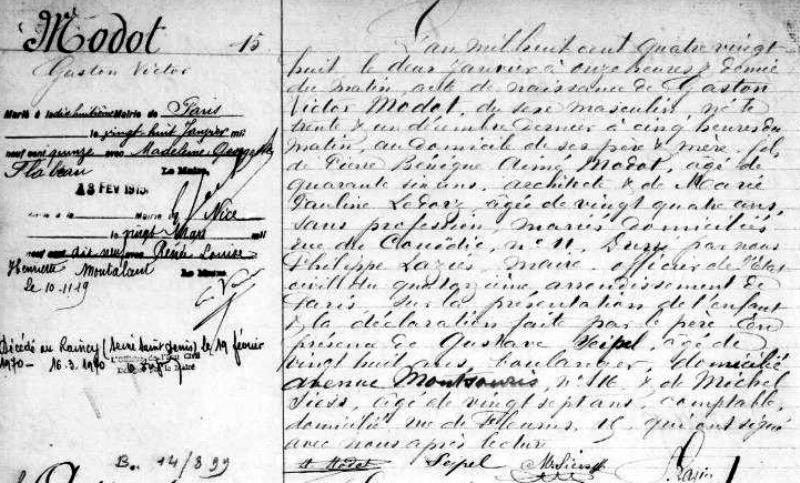 Modot 15
Gaston Victor
Marié à la dixhuitième Mairie de Paris
le vingt huit Janvier mil
neuf cent quinze avec Madeleine Georgette
Flabeau Le Maire,
13 FEV 1915
Mairie de Nice
le vingt Mars mil
neuf cent dix neuf avec Renée Louise
Henriette Montalant Le Maire
le 10-11-19
Décédé au Raincy (Seine Saint Denis) le 19 février
1970 - 16.3.1970
B. 14/8 99
L'an mil huit cent quatre vingt
huit le deux Janvier à onze heures & demie
du matin, acte de naissance de Gaston
Victor Modot, du sexe masculin, né le
trente & un décembre dernier à cinq heures du
matin, au domicile de ses père & mère, fils
de Pierre Bénigne Aimé Modot, âgé de
quarante six ans, architecte & de Marie
Pauline âgée de vingt quatre ans,
sans profession, mariés domiciliés
rue du Couëdic, n° 11. Dressé par nous
Philippe Laziés, maire, officier de l'état
civil du quatorzième arrondissement de
Paris, sur la présentation de l'enfant
& la déclaration faite par le père en
présence de Gustave Seipel, âgé de
vingt huit ans, boulanger, domicilié
avenue Montsouris, n° & de Michel
Siess, âgé de vingt sept ans, comptable,
domicilié rue de Fleurus, 15, qui ont signé
avec nous après lecture
Modot Sepel